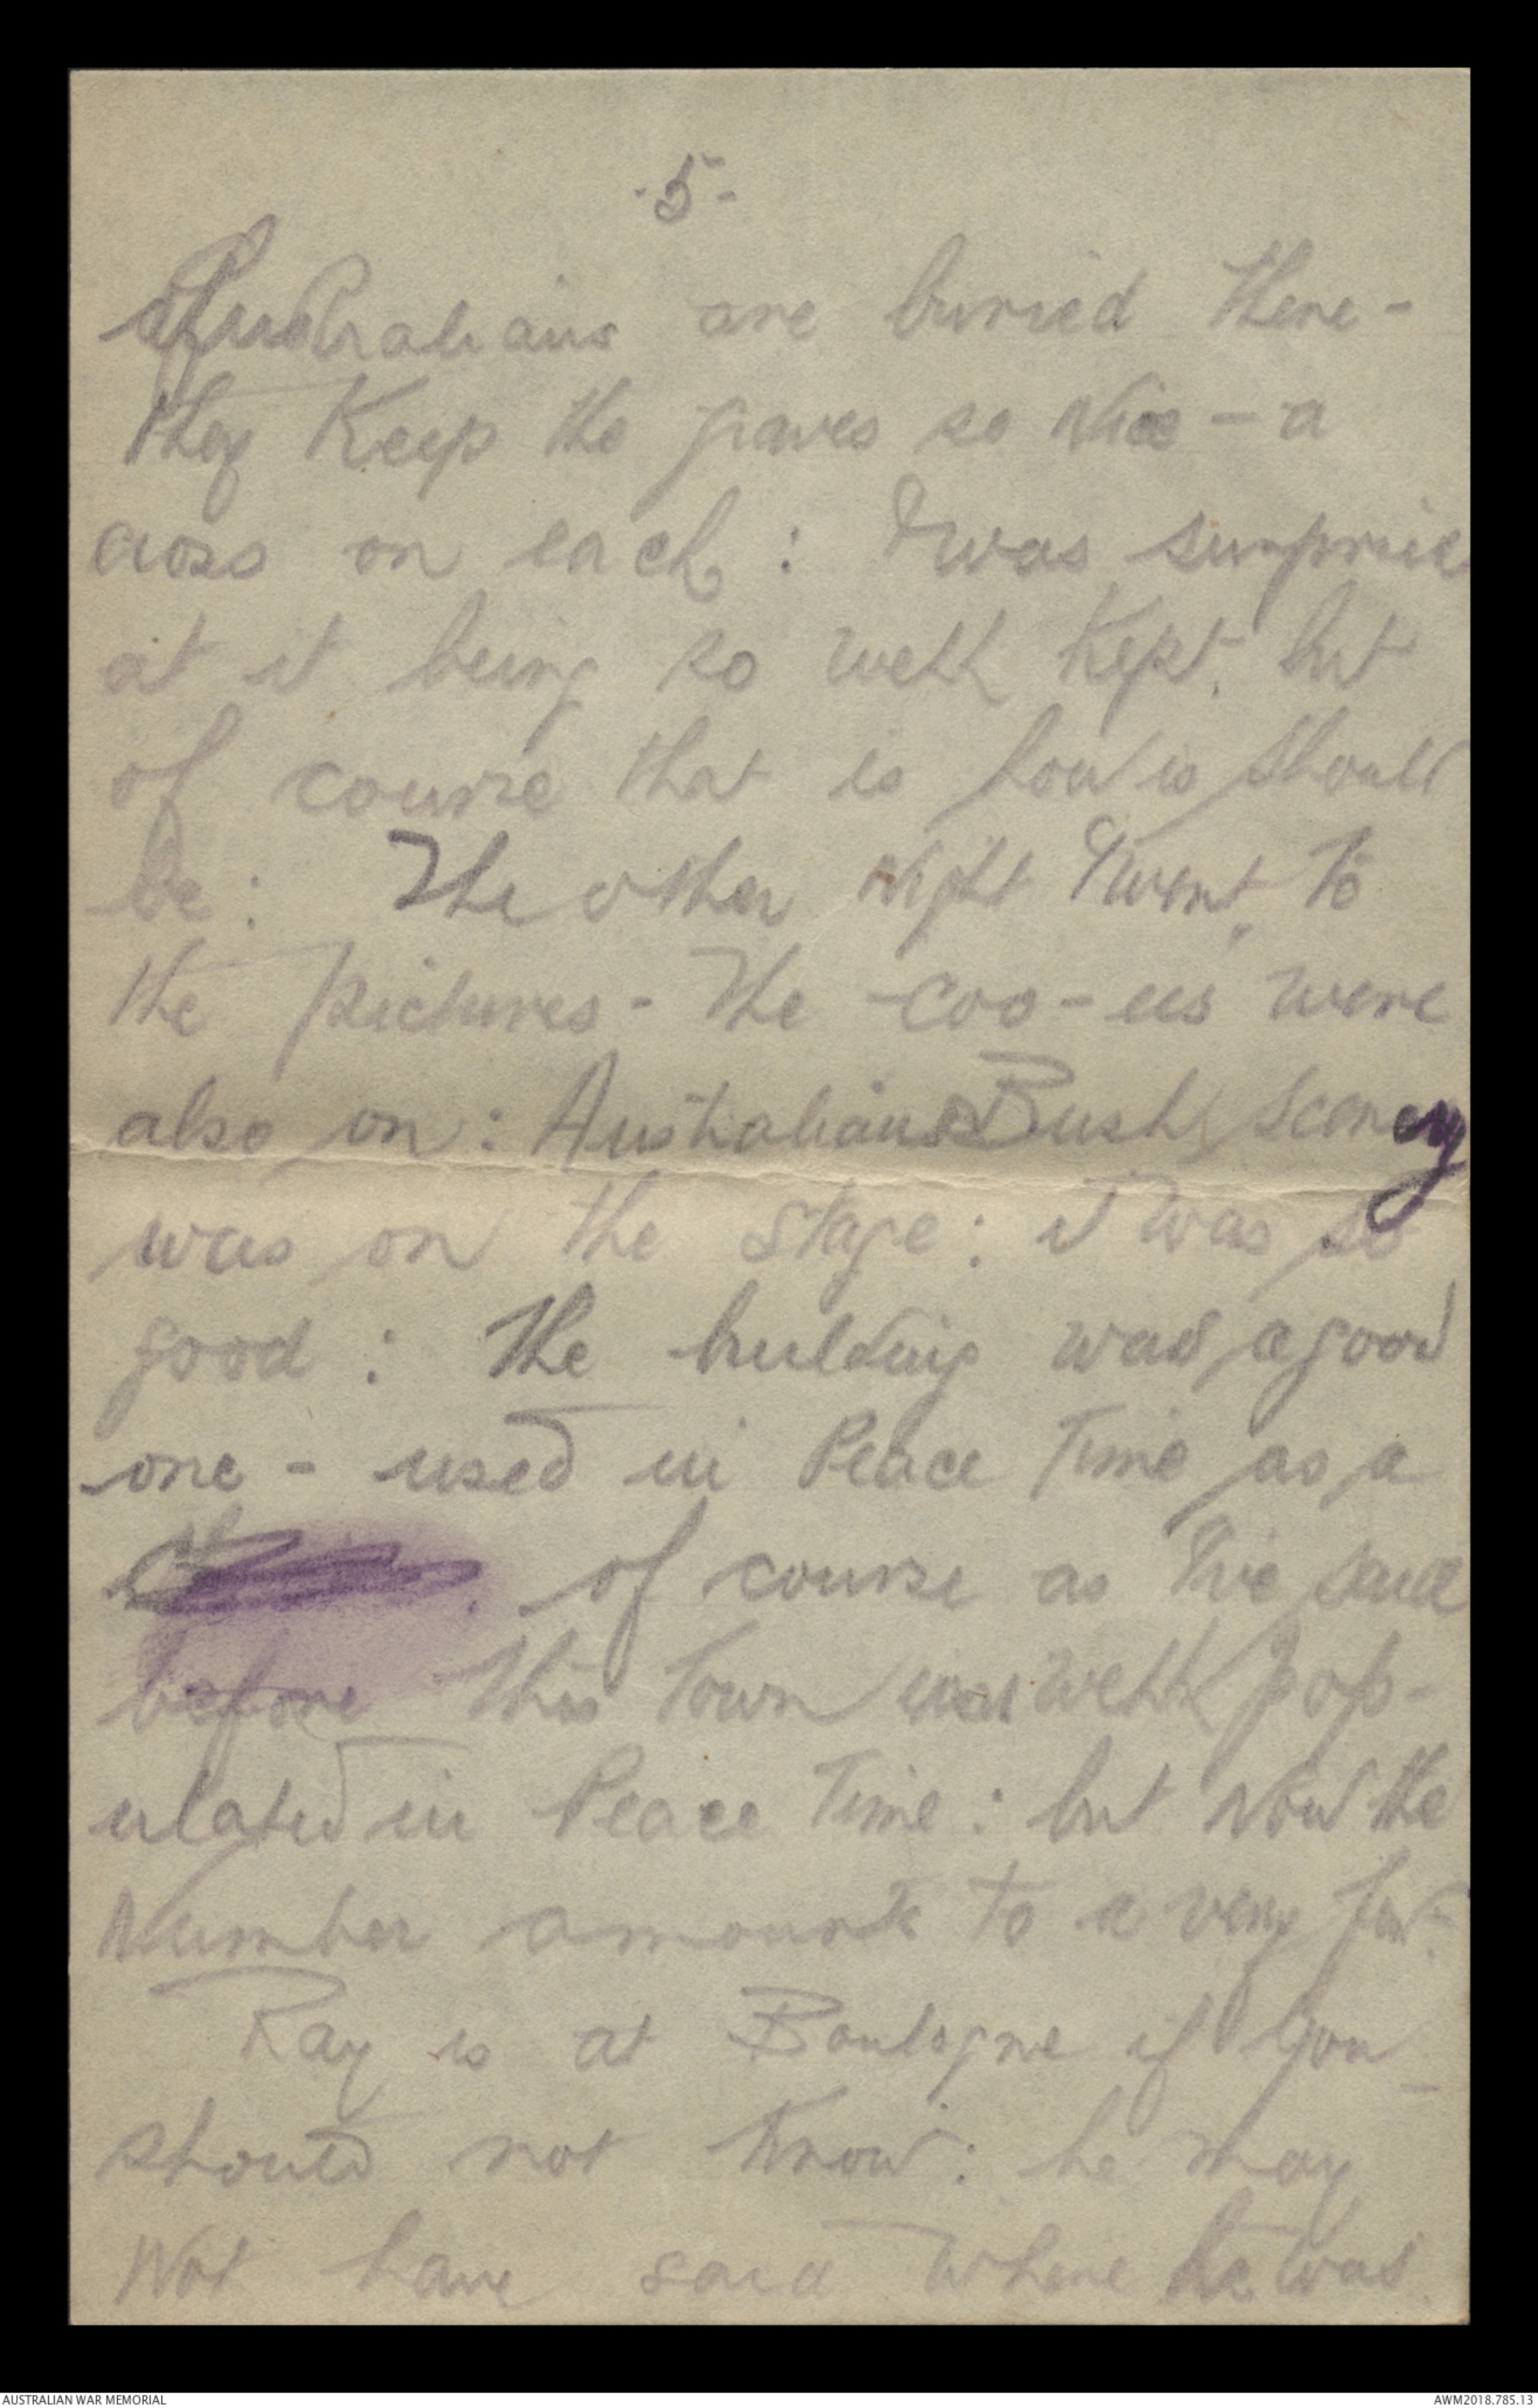 -5-
Australians are buried there -
they keep the graves so nice - a
cross on each : I was surprise
at it being so well kept, but
of course that is how is should
be : The other night I went to
the pictures - The -Coo-ees were
also on : Australian Bush Scenery
was on the stage : it was so
good : The building was a good
one - used in Peace Time as a
of course as I've said
before this town was well pop-
ulated in Peace Time : but now the
number amounts to a very few.
Ray is at Boulogne if you
should not know : he may
not have said where he was
AUSTRALIAN WAR MEMORIAL
AWM2018.785.13